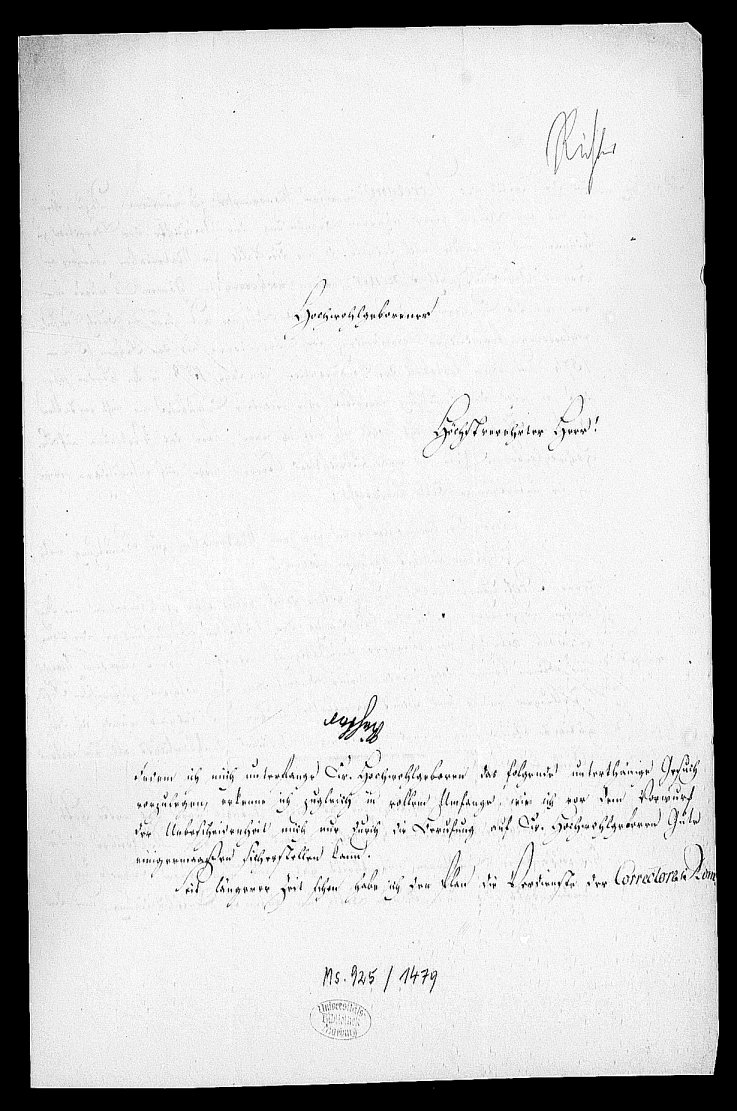 Richter
Hochwohlgeborener
Höchstverehrter Herr!
Richter
Indem ich mich unterfange Ew. Hochwohlgeboren das folgende unterthänige Gesuch
vorzulegen, erkenne ich zugleich in vollem Umfange, wie ich vor dem Vorwurf
der Unbescheidenheit mich nur durch die Berufung auf Ew. Hochwohlgeboren Güte
einigermaaßen sicherstellen kann.
Seit längerer Zeit schon habe ich den Plan die Verdienste der Correctores Rom
Ms. 925 / 1479
Universitäts-
Bibliothek
Marburg